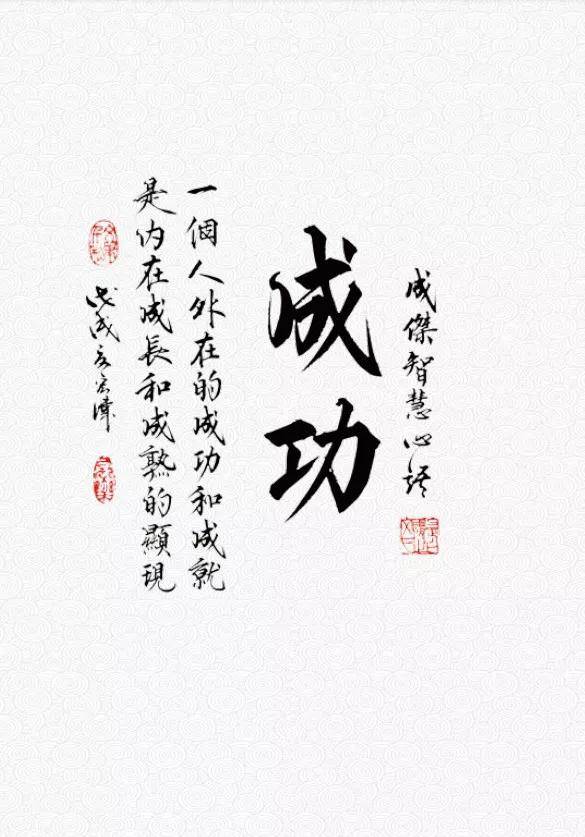 成傑智慧心語
成功
一個人外在的成功和成就
是內在成長和成熟的顯現
戊戌